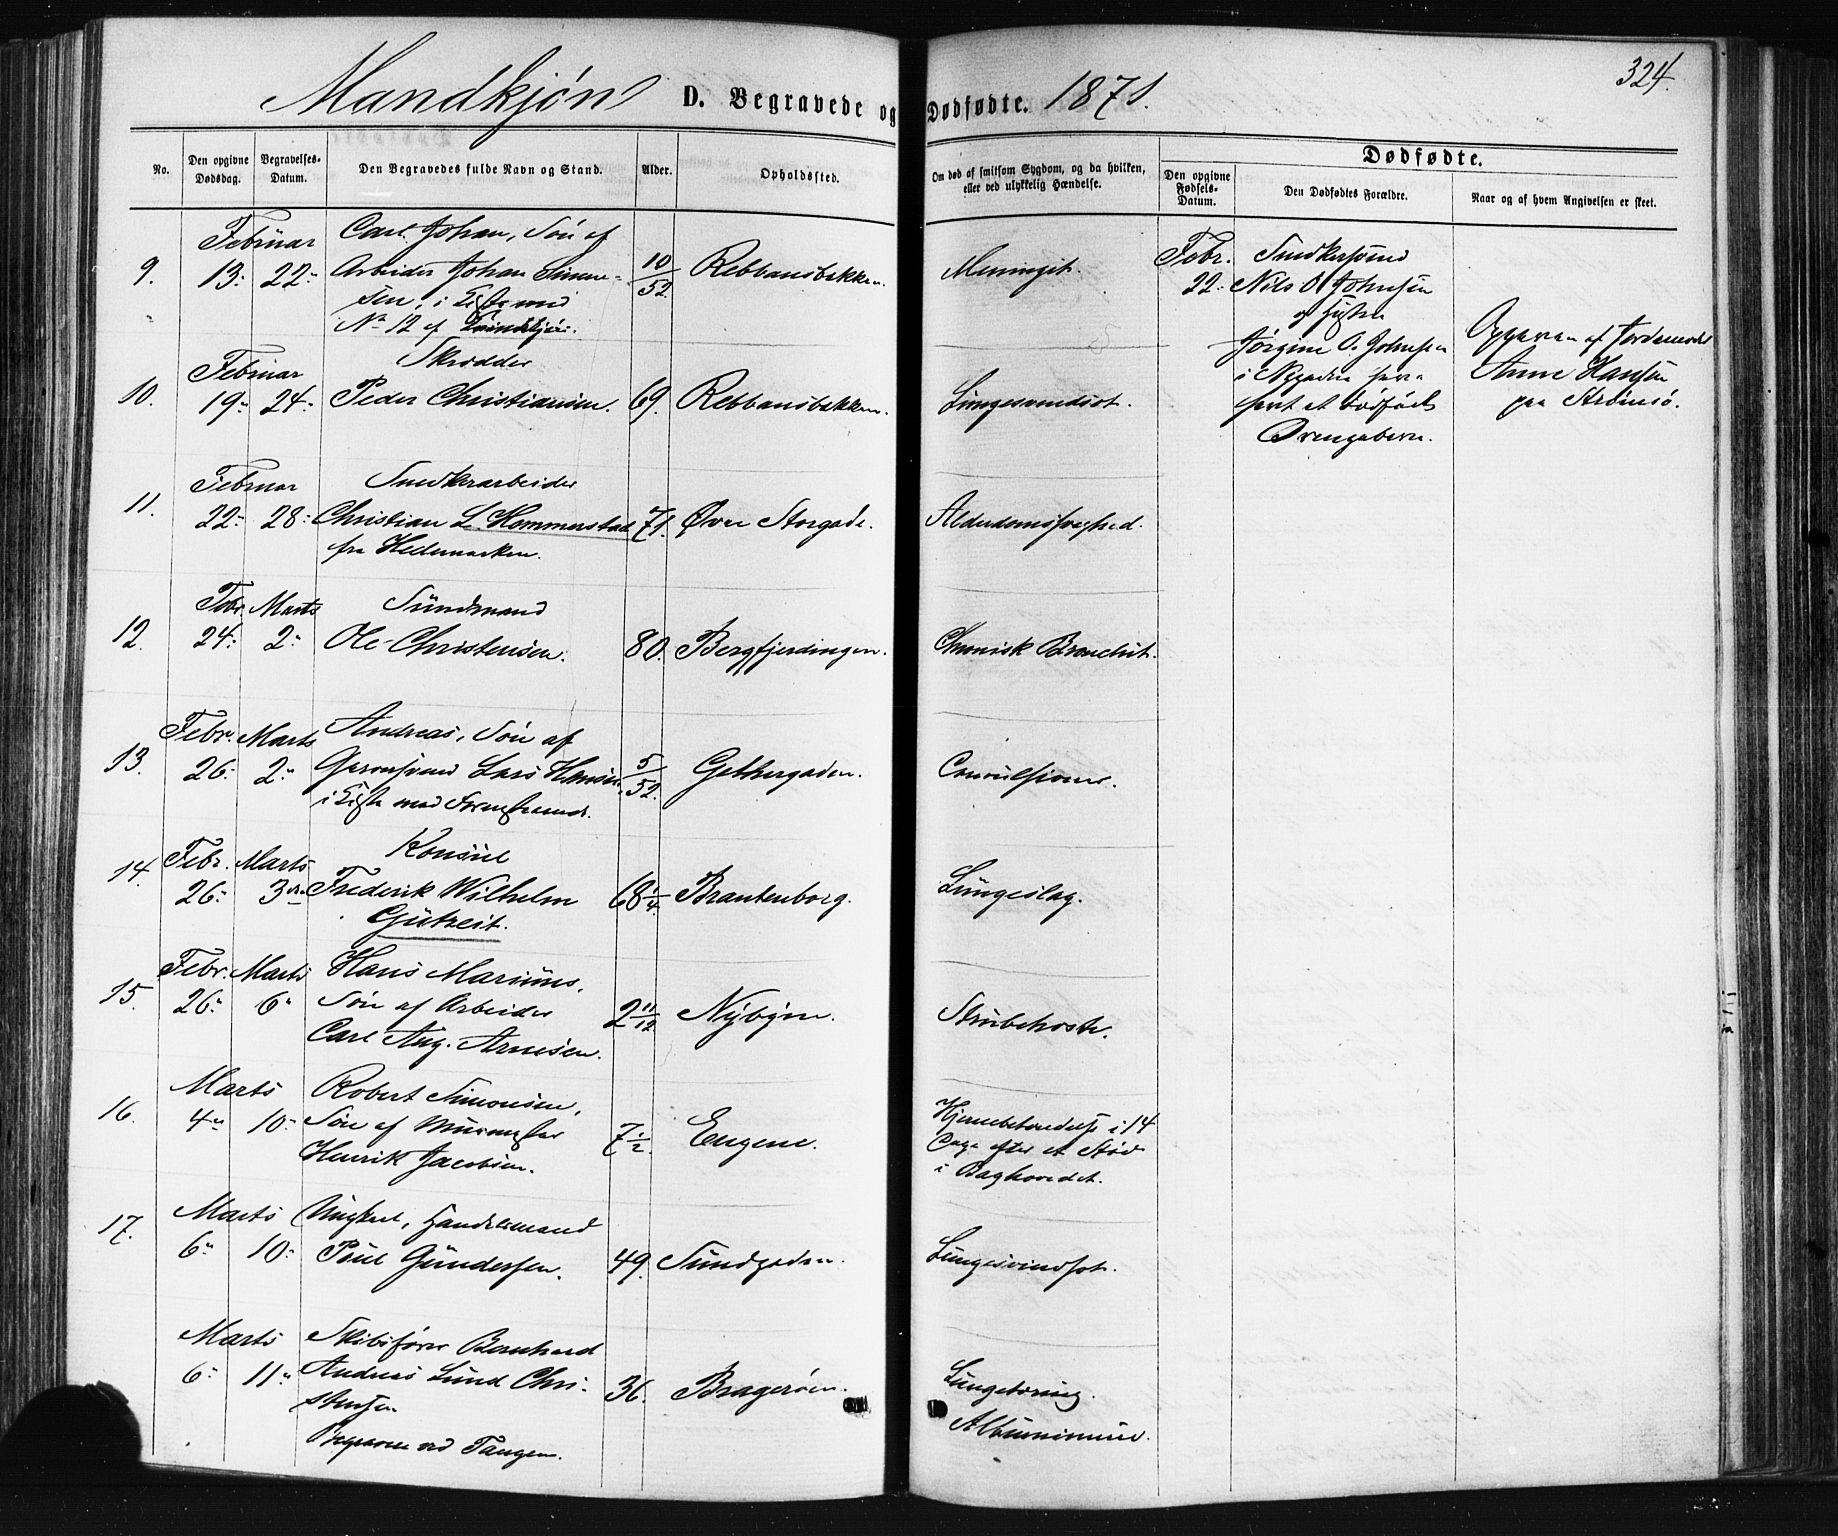 324.
Mandkjøn D. Begravede og Dødfødte. 1871.
No.
Den opgivne Dødsdag.
Begravelses-Datum.
Den Begravedes fulde Navn og Stand.
Alder.
Opholdssted.
Om død af smitsom Sygdom, og da hvilken, eller ved ulykkelig Hændelse.
Dødfødte.
Den opgivne Fødsels-Datum.
Den Dødfødtes Forældre.
Naar og af hvem Angivelsen er skeet.
Februar Carl Johan, Søn af
9. 13. 22. Arbeider Johan Simen- 10/52 Rebbansbakken. Meningit.
sen, i Kiste med
No 12 af Kvindekjøn.
Februar Skrædder
10. 19. 24. Peder Christiansen. 69. Rebbansbakken. Lungesvindsot.
Februar Snedkerarbeider
11. 22. 28. Christian L. Hommerstad 71. Øvre Storgade. Alderdomssvaghed.
fra Hedemarken.
Febr. Marts Sundmand
12. 24. 2. Ole Christensen. 80. Bergfjerdingen. Chronisk Bronchit.
Febr. Marts Andreas, Søn af
13. 26. 2. Lars Hansen 5/52. Gethergaden. Convulsioner.
i Kiste med
Febr. Marts Konsul
14. 26. 3. Frederik Wilhelm 68 1/4. Brantenborg. Lungeslag.
Gützeit.
Febr. Marts Hans Marinus,
15. 26. 6. Søn af Arbeider 2 11/12 Nybyen. Strubehoste.
Carl Aug. Arnesen.
Marts Robert Simonsen,
16. 4. 10. Søn af Murmester 7 1/2. Engene. Hjernebetændelse i 14
Henrik Jacobsen. Dage efter et Stød
i Baghovedet.
Marts Ungkarl, Handelsmand
17. 6. 10. Poul Gundersen. 49. Sundgaden. Lungesvindsot.
Marts Skibsfører Bernhard
6. 11. Andreas Lund Chri- 36. Bragerøen. Lungetæring.
stensen Albuminurie.
Begraven ved Tangen.
Febr. Snedkersvend
22. Nils O. Johnsen
og Hustru
Jørgine O. Johnsen
i Nygaden har
født et dødfødt
Drengebarn.
Opgaven af Jordemoder
Anne Hansen
paa Strømsø.